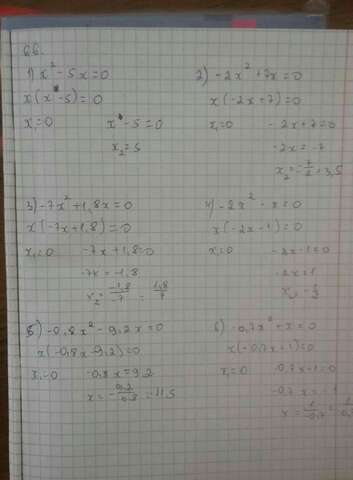 66.
1) x² - 5x = 0
x(x - 5) = 0
x₁ = 0 x - 5 = 0
x₂ = 5
2) -2x² + 7x = 0
x(-2x + 7) = 0
x₁ = 0 -2x + 7 = 0
-2x = -7
x₂ = -7/2 = 3,5
3) -7x² + 1,8x = 0
x(-7x + 1,8) = 0
x₁ = 0 -7x + 1,8 = 0
-7x = -1,8
x₂ = -1,8/-7 = 1,8/7
4) -2x² - x = 0
x(-2x - 1) = 0
x₁ = 0 -2x - 1 = 0
-2x = 1
5) -0,8x² - 9,2x = 0
x(-0,8x - 9,2) = 0
x₁ = 0 -0,8x = 9,2
x = -9,2/0,8 = -11,5
6) -0,7x² + x = 0
x(-0,7x + 1) = 0
x₁ = 0